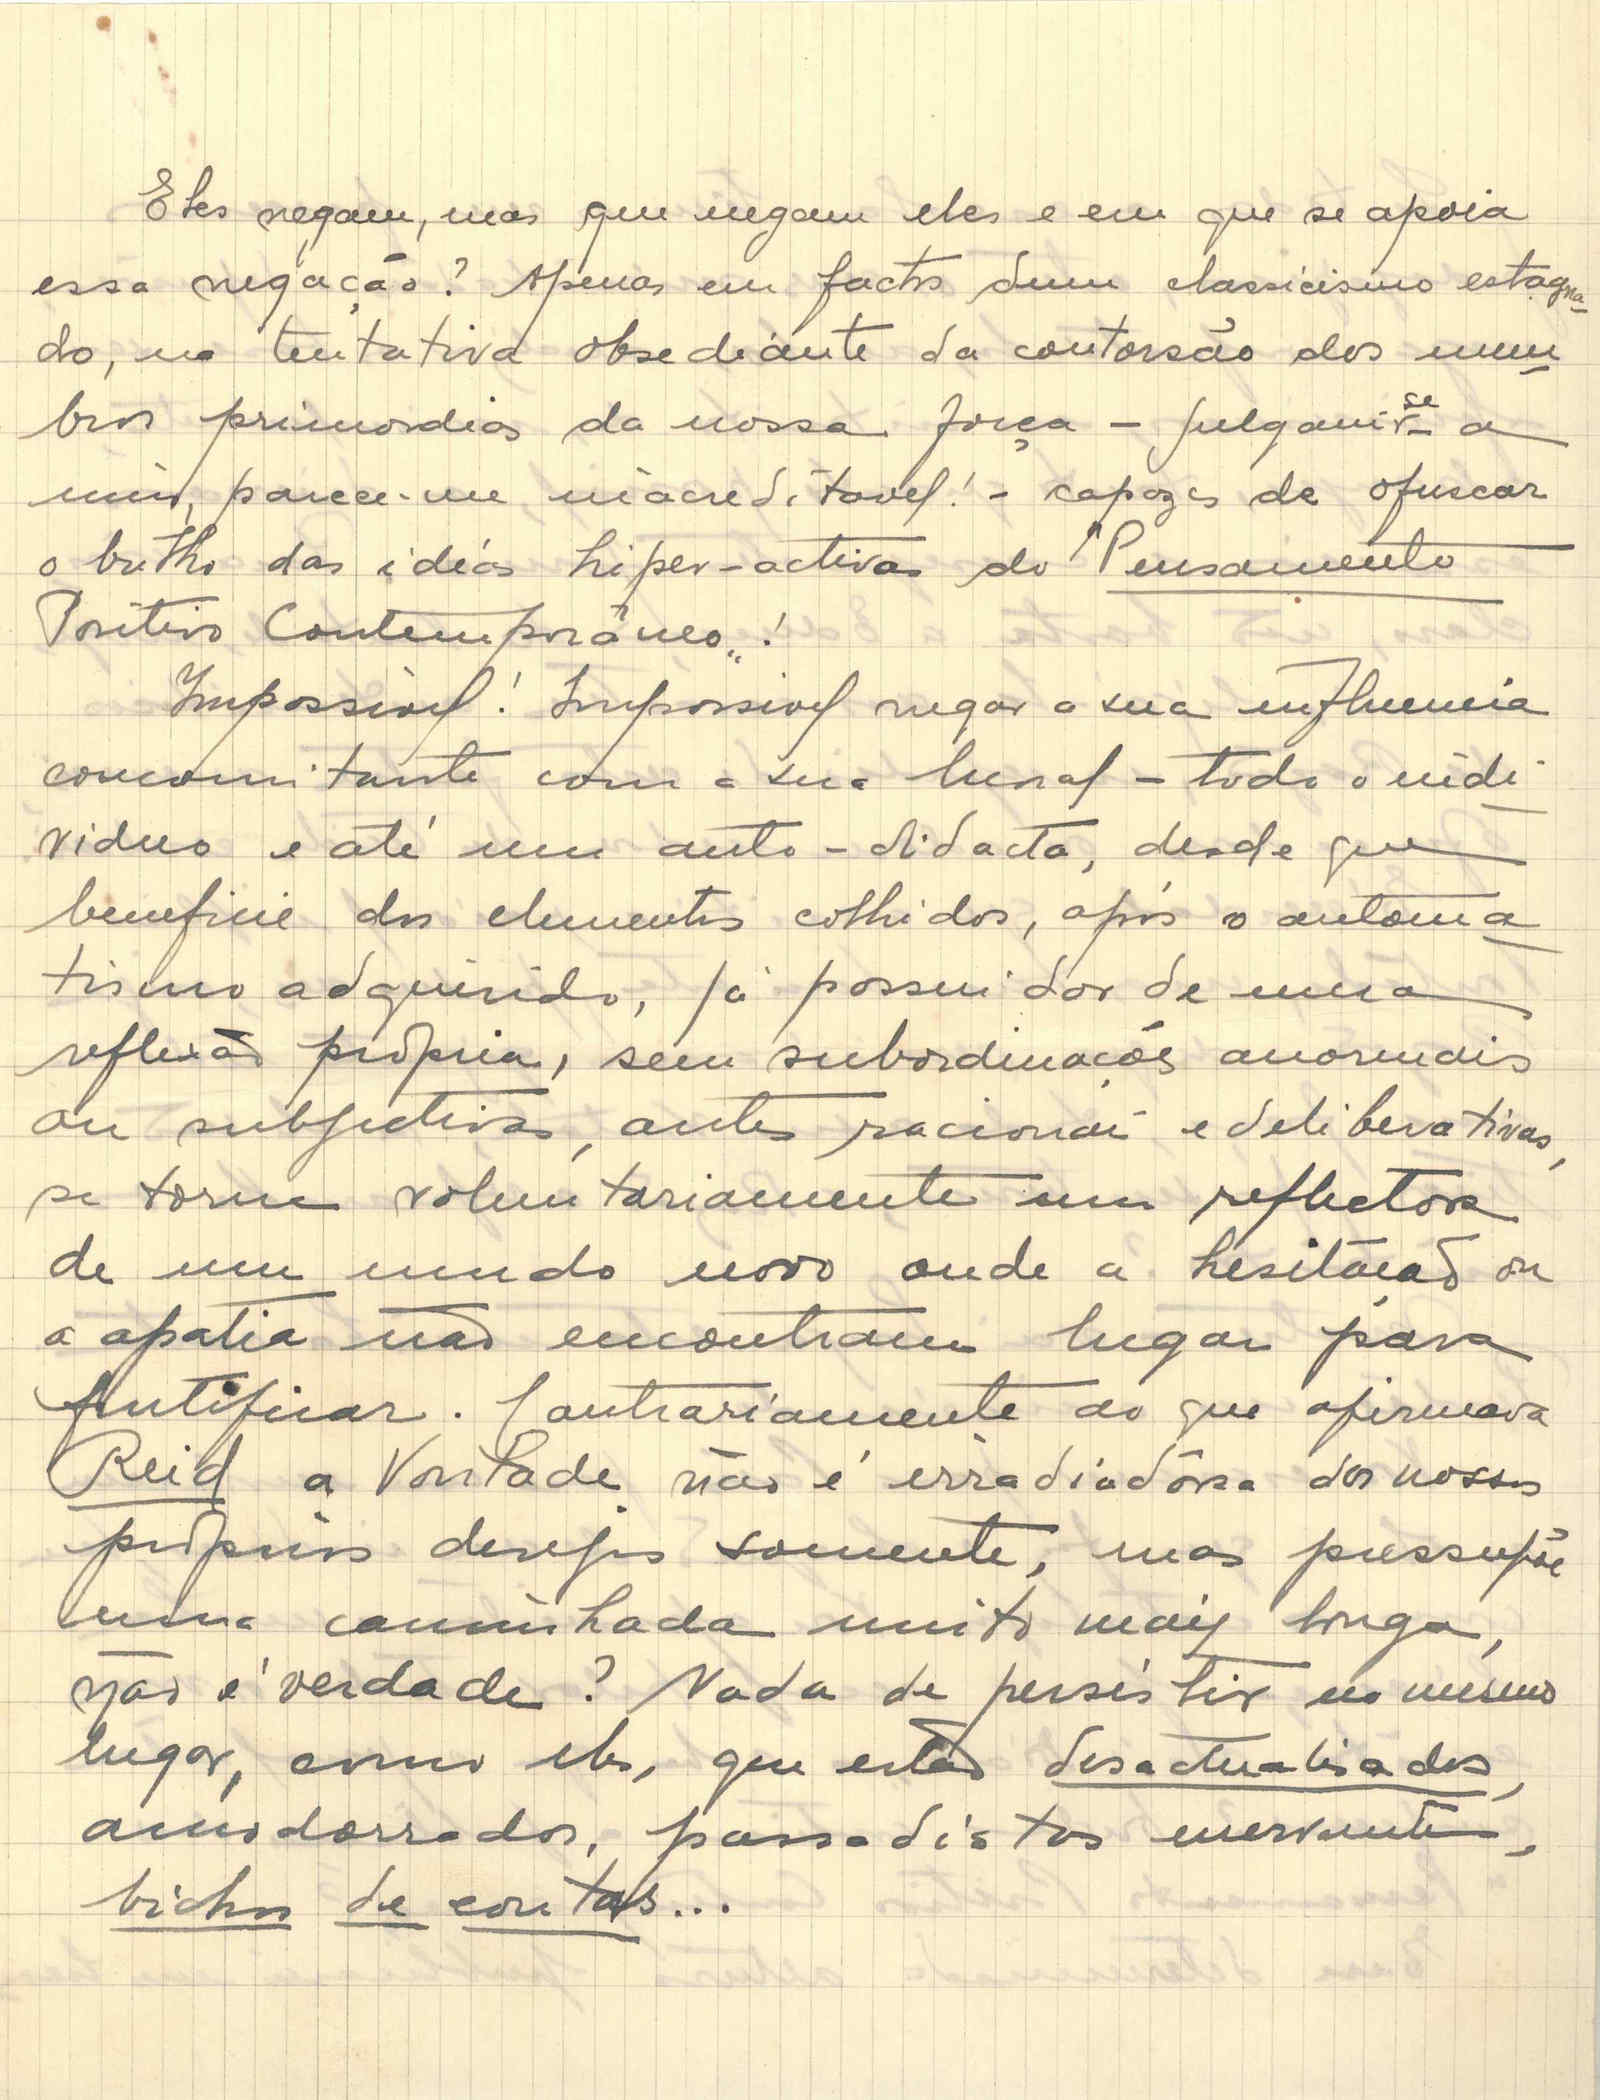 Eles negam, mas que negam eles e em que se apoia
essa negação? Apenas em factos dum classicismo estagna-
do, na tentativa obsediante da contorsão dos mem-
bros primordiais da nossa força – julgam-se a
mim, parece-me inacreditavel! – capazes de ofuscar
o brilho das idéas hiper-activas do "Pensamento
Positivo Contemporâneo"!
Impossivel! Impossivel negar a sua influencia
concomitante com a sua moral – todo o indi-
viduo e até um auto-didacta, desde que
beneficie dos elementos colhidos, após o automa-
tismo adquirido, já possuidor de uma
reflexão própria, sem subordinações anormais
ou subjectivas, antes racionais e deliberativas,
se torne voluntariamente um reflectora
de um mundo novo onde a hesitação ou
a apatia não encontram lugar para
frutificar. Contrariamente ao que afirmava
Reid a Vontade não é irradiadôra dos nossos
próprios desejos somente, mas pressupõe
uma caminhada muito mais longa,
não é verdade? Nada de persistir no mesmo
lugar, como eles, que estão desactualisados,
amodorrados, passadistas enervantes,
bichos de contas...